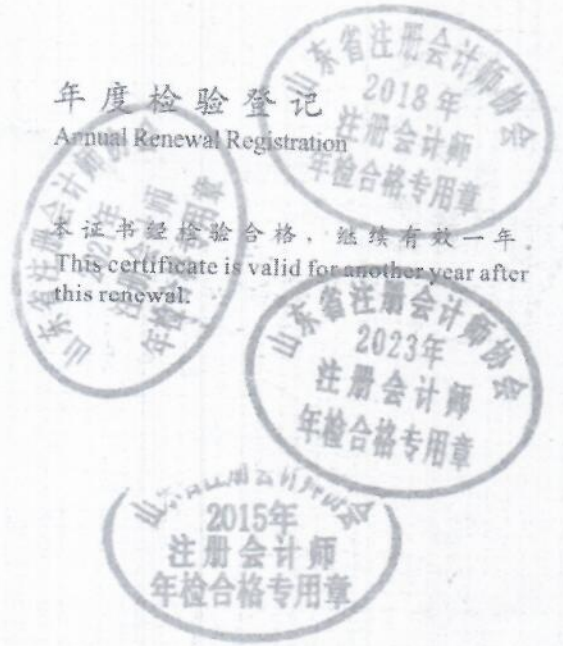 年度检验登记
Annual Renewal Registration
本证书经检验合格，继续有效一年。
This certificate is valid for another year after
this renewal.
山东省注册会计师协会
2018年
注册会计师
年检合格专用章
山东省注册会计师协会
注册会计师
年检合格专用章
山东省注册会计师协会
2023年
注册会计师
年检合格专用章
山东省注册会计师协会
2015年
注册会计师
年检合格专用章